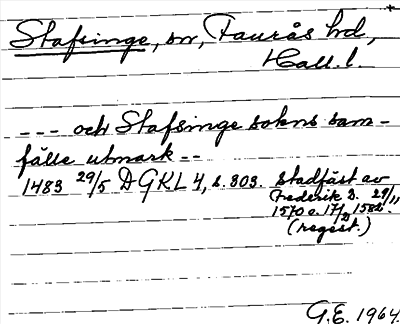 Stafsinge, sn, Faurås hd,
Hall. l.
--- och Stafsinge sokns sam-
fälle utmark --
1483 29/5 DGKL 4, s. 303. stadfäst av
Frederik 2. 29/11
1570 o. 17/2 1582.
(regest.)
G.E. 1964.